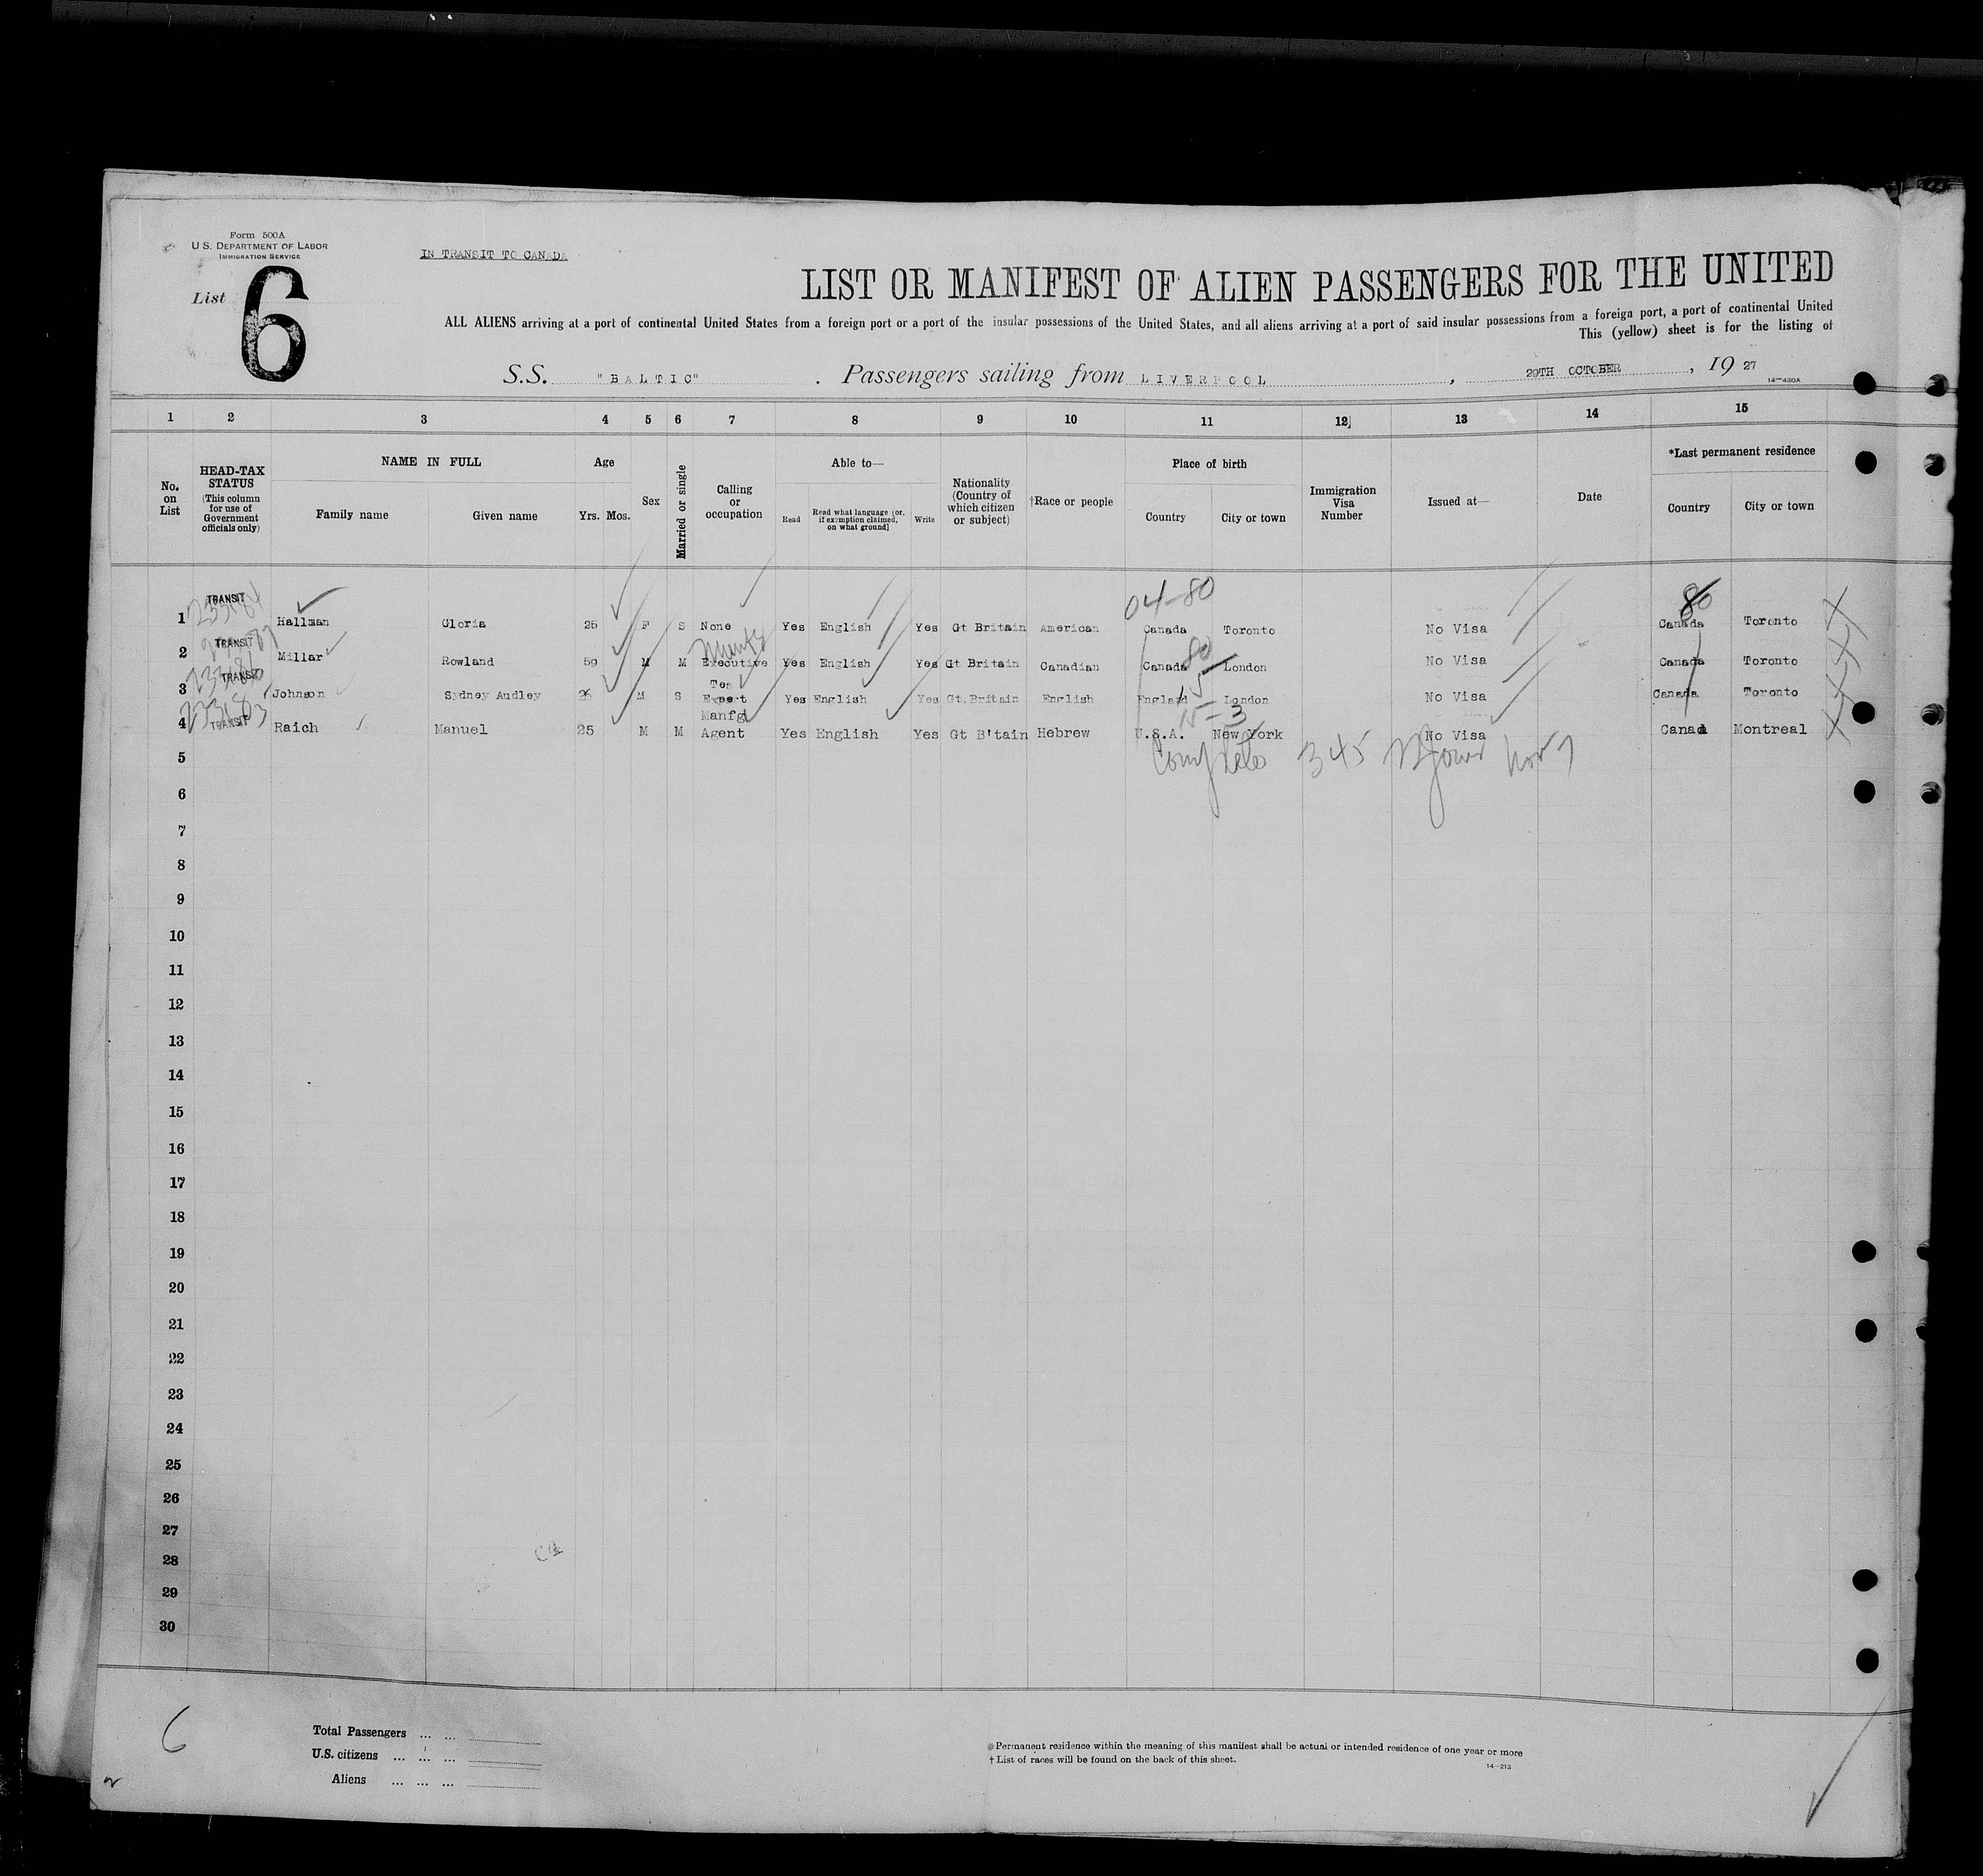 Form 500A
U S. DEPARTMENT OF LABOR
IMMIGRATION SERVICE
IN TRANSIT TO CANADA
List 6
LIST OR MANIFEST OF ALIEN PASSENGERS FOR THE UNITED
ALL ALIENS arriving at a port of continental United States from a foreign port or a port of the insular possessions of the United States, and all aliens arriving at a port of said insular possessions from a foreign port, a port of continental United
This (yellow) sheet is for the listing of
S.S. "BALTIC" . Passengers sailing from LIVERPOOL , 29TH OCTOBER , 19 27
14—430A
1 2 3 4 5 6 7 8 9 10 11 12 13 14 15
No. on List
HEAD-TAX STATUS
(This column for use of Government officials only)
NAME IN FULL
Family name
Given name
Age
Yrs. Mos.
Sex
Married or single
Calling or occupation
Able to—
Read
Read what language [or, if exemption claimed, on what ground]
Write
Nationality (Country of which citizen or subject)
†Race or people
Place of birth
Country
City or town
Immigration Visa Number
Issued at—
Date
*Last permanent residence
Country
City or town
04-80
80
1 TRANSIT Hallman Gloria 25 F S None Yes English Yes Gt Britain American Canada Toronto No Visa Canada Toronto
80
2 TRANSIT Millar Rowland 59 M M Executive Yes English Yes Gt Britain Canadian Canada London No Visa Canada Toronto
15
3 TRANSIT Johnson Sydney Audley 26 M S Tea Expert Yes English Yes Gt.Britain English England London No Visa Canada Toronto
15-3
4 TRANSIT Raich Manuel 25 M M Manfg Agent Yes English Yes Gt B'tain Hebrew U.S.A. New York No Visa Canad Montreal
5 Complete 345 Nov 7
6
7
8
9
10
11
12
13
14
15
16
17
18
19
20
21
22
23
24
25
26
27
28
29
30
6
Total Passengers ... ...
U.S. citizens ... ... ...
Aliens ... ... ...
*Permanent residence within the meaning of this manifest shall be actual or intended residence of one year or more
† List of races will be found on the back of this sheet.
14—213